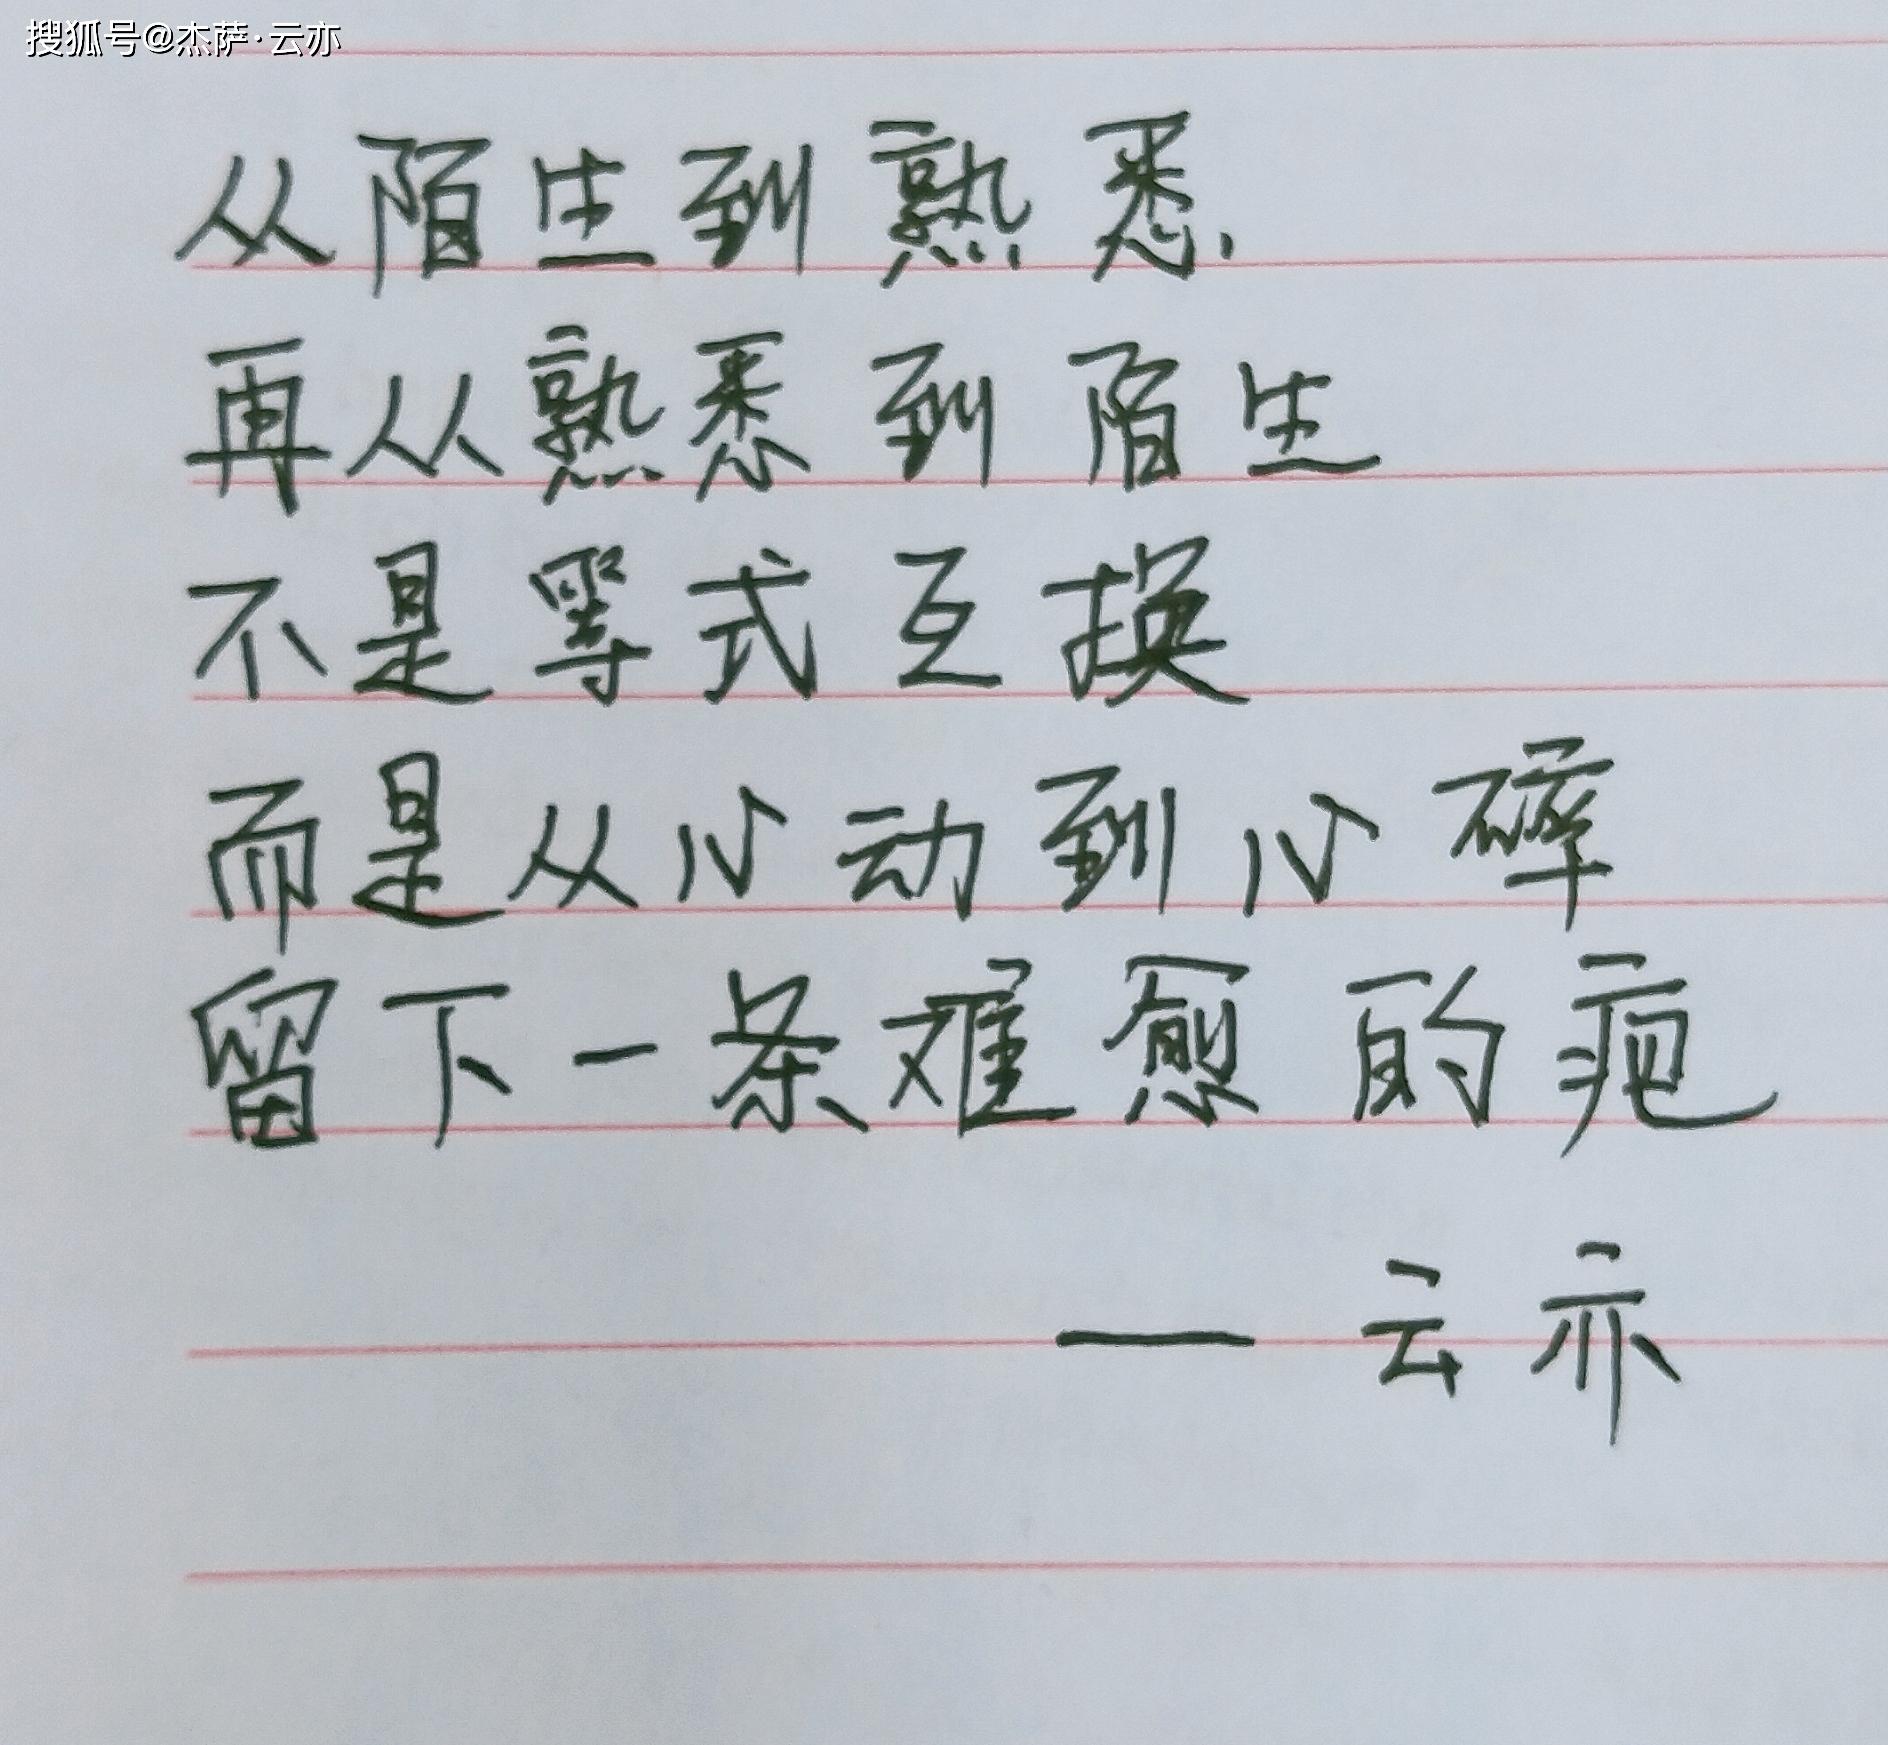 搜狐号@杰萨·云亦
从陌生到熟悉
再从熟悉到陌生
不是等式互换
而是从心动到心碎
留下一条难愈的疤
——云亦